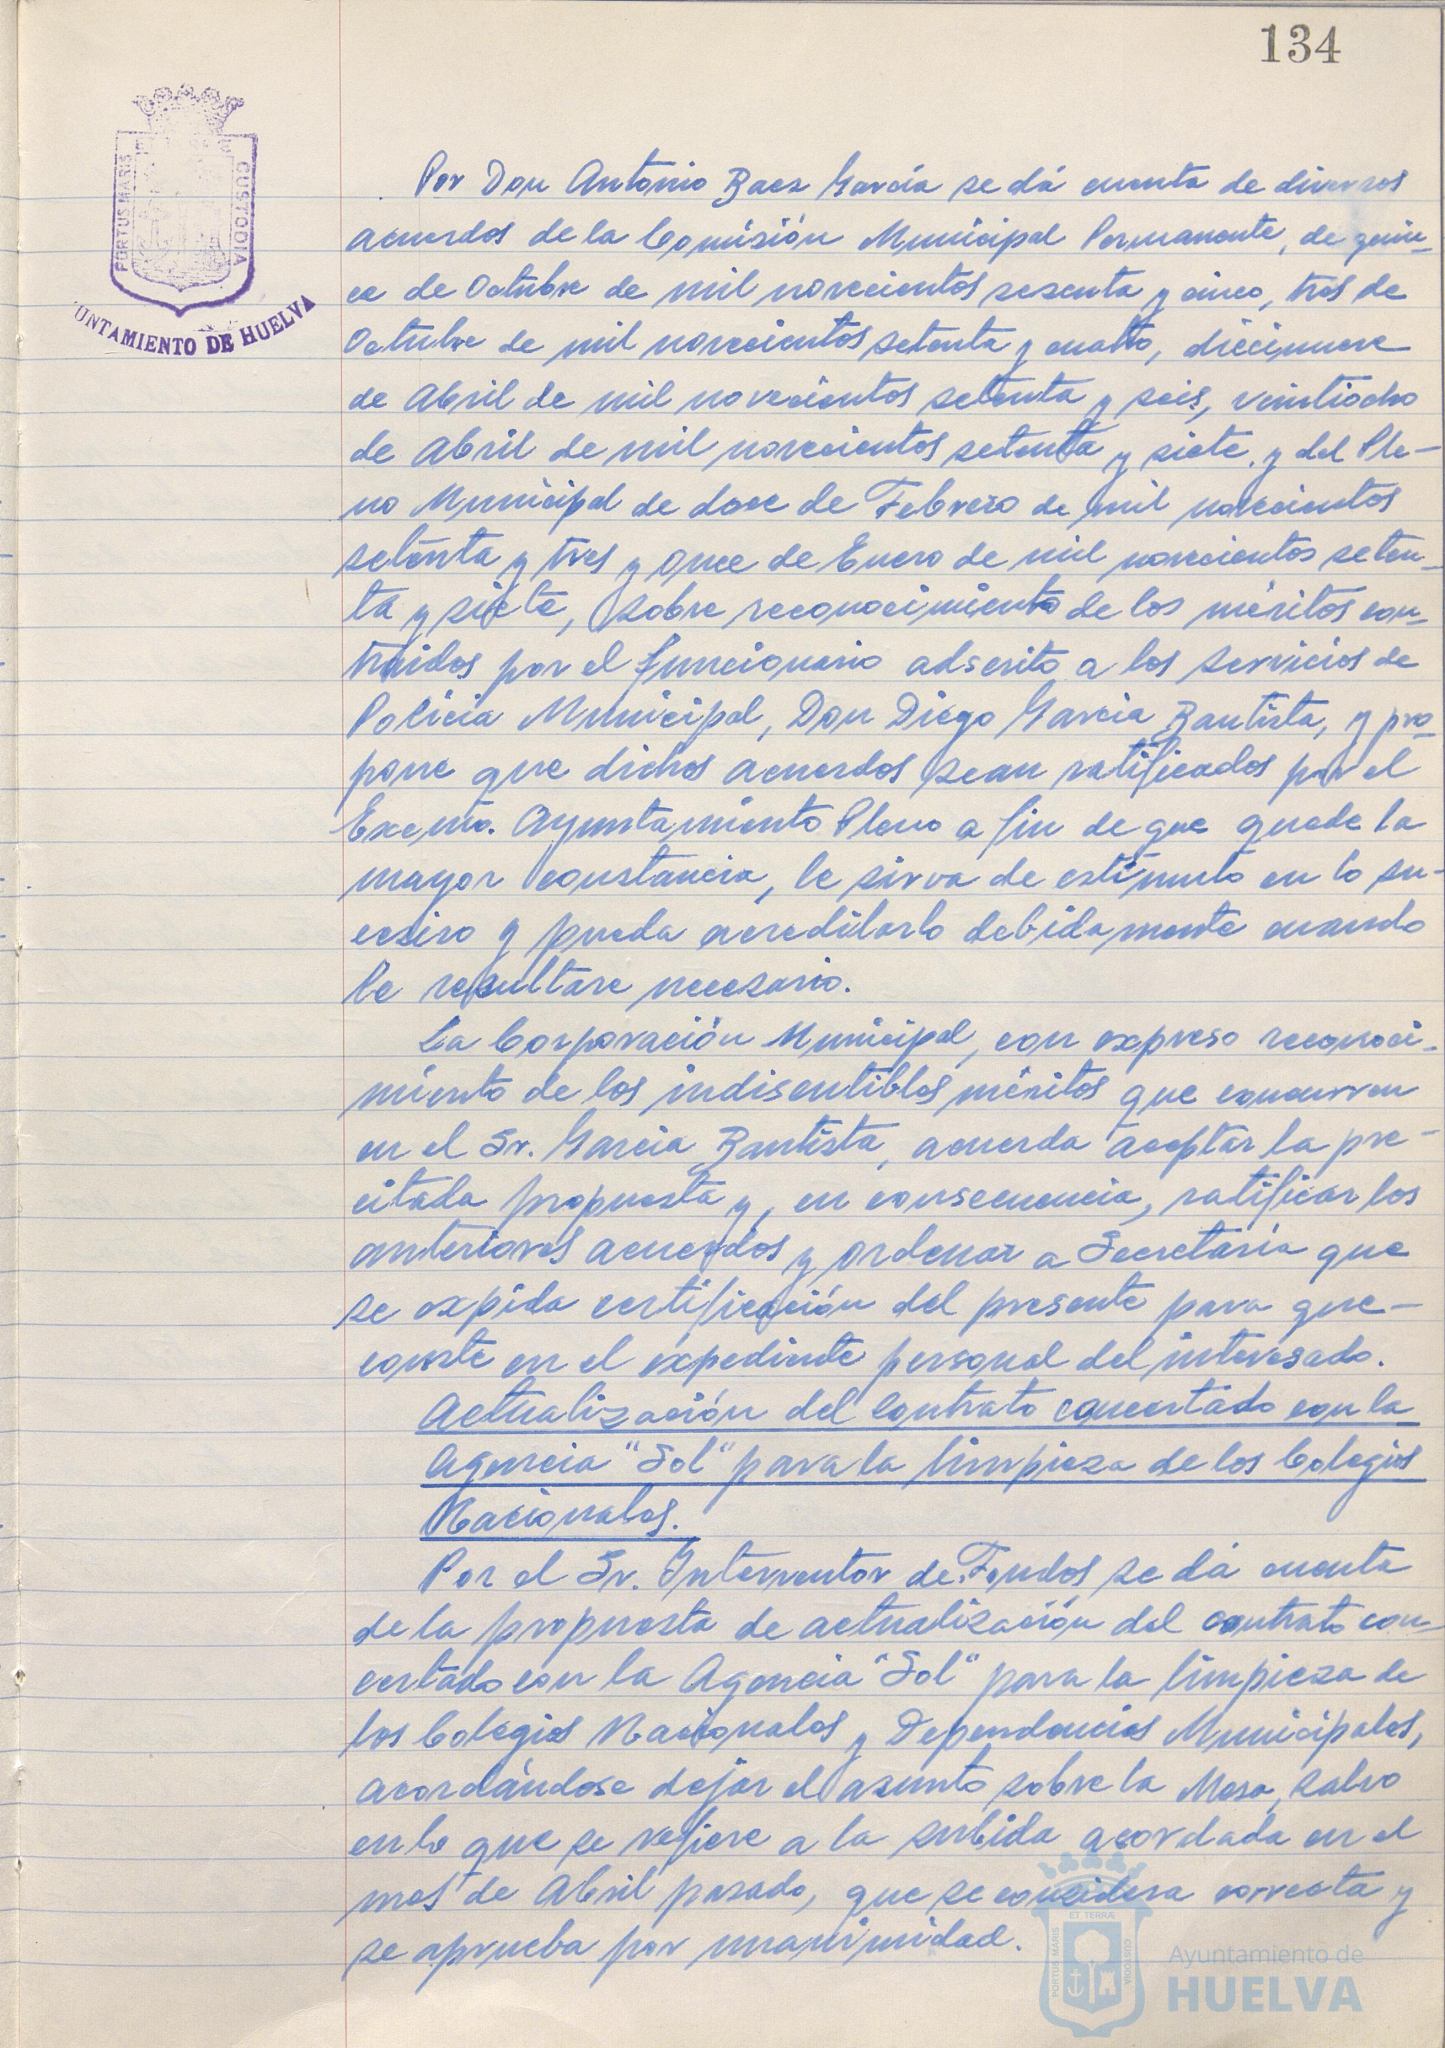 134
PORTUS MARIS
CUSTODIA
UNTAMIENTO DE HUELVA
Por Don Antonio Baez García se dá cuenta de diversos
acuerdos de la Comisión Municipal Permanente, de quin-
ce de Octubre de mil novecientos sesenta y cinco, tres de
Octubre de mil novecientos setenta y cuatro, diecinueve
de Abril de mil novecientos setenta y seis, veintiocho
de Abril de mil novecientos setenta y siete, y del Ple-
no Municipal de doce de Febrero de mil novecientos
setenta y tres y once de Enero de mil novecientos seten-
ta y siete, sobre reconocimiento de los méritos con-
traidos por el funcionario adscrito a los servicios de
Policia Municipal, Don Diego Garcia Bautista, y pro-
pone que dichos acuerdos sean ratificados por el
Excmo. Ayuntamiento Pleno a fin de que quede la
mayor constancia, le sirva de estímulo en lo su-
cesivo y pueda acreditarlo debidamente cuando
le resultare necesario.
La Corporación Municipal, con expreso reconoci-
miento de los indiscutibles méritos que concurren
en el Sr. Garcia Bautista, acuerda aceptar la pre-
citada propuesta y, en consecuencia, ratificar los
anteriores acuerdos y ordenar a Secretaria que
se expida certificación del presente para que-
conste en el expediente personal del interesado.
Actualización del contrato concertado con la
Agencia "Sol" para la limpieza de los Colegios
Nacionales.
Por el Sr. Interventor de Fondos se dá cuenta
de la propuesta de actualización del contrato con-
certado con la Agencia "Sol" para la limpieza de
los Colegios Nacionales y Dependencias Municipales,
acordándose dejar el asunto sobre la Mesa, salvo
en lo que se refiere a la subida acordada en el
mes de Abril pasado, que se considera correcta y
se aprueba por unanimidad.
ET TERRÆ
PORTUS MARIS
CUSTODIA
Ayuntamiento de
HUELVA